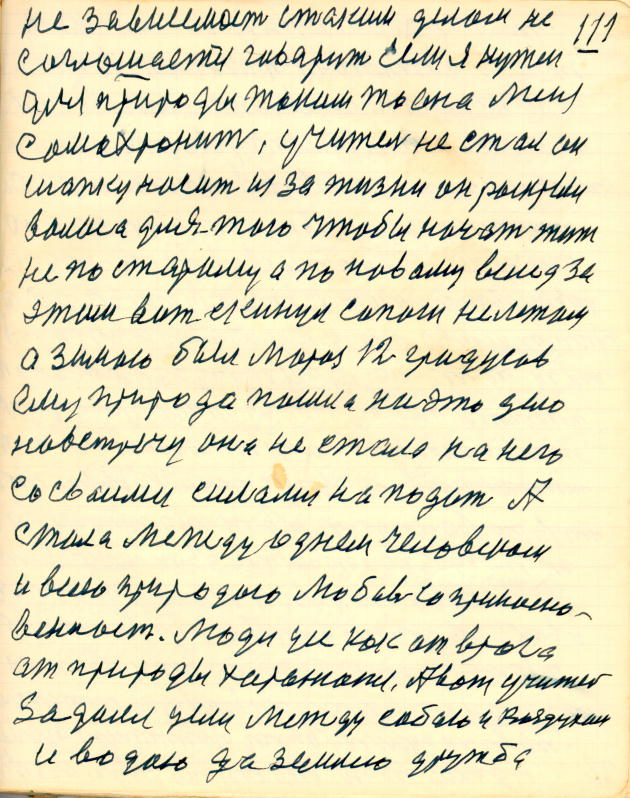 не зависемост стаким делом не 111
соглошаети говарит если я нужен
для природы таким то она меня
сомахронит, учител не стал он
шапку носит из за жизни он раскрыл
волоса для того чтобы начат жит
не постарому а по новаму вслед за
этим вот скинул сапоги не летом
а зимою был мороз 12 градусов
ему природа пошла на это дело
навстричу она не стала на него
со своими силами нападат А
стала между однем человеком
и всею природою любов соприкосно-
венност. Люди уе как от врага
от природы харанили. А вот учител
Задался цели между собою и Воздухом
и водою да землею дружба